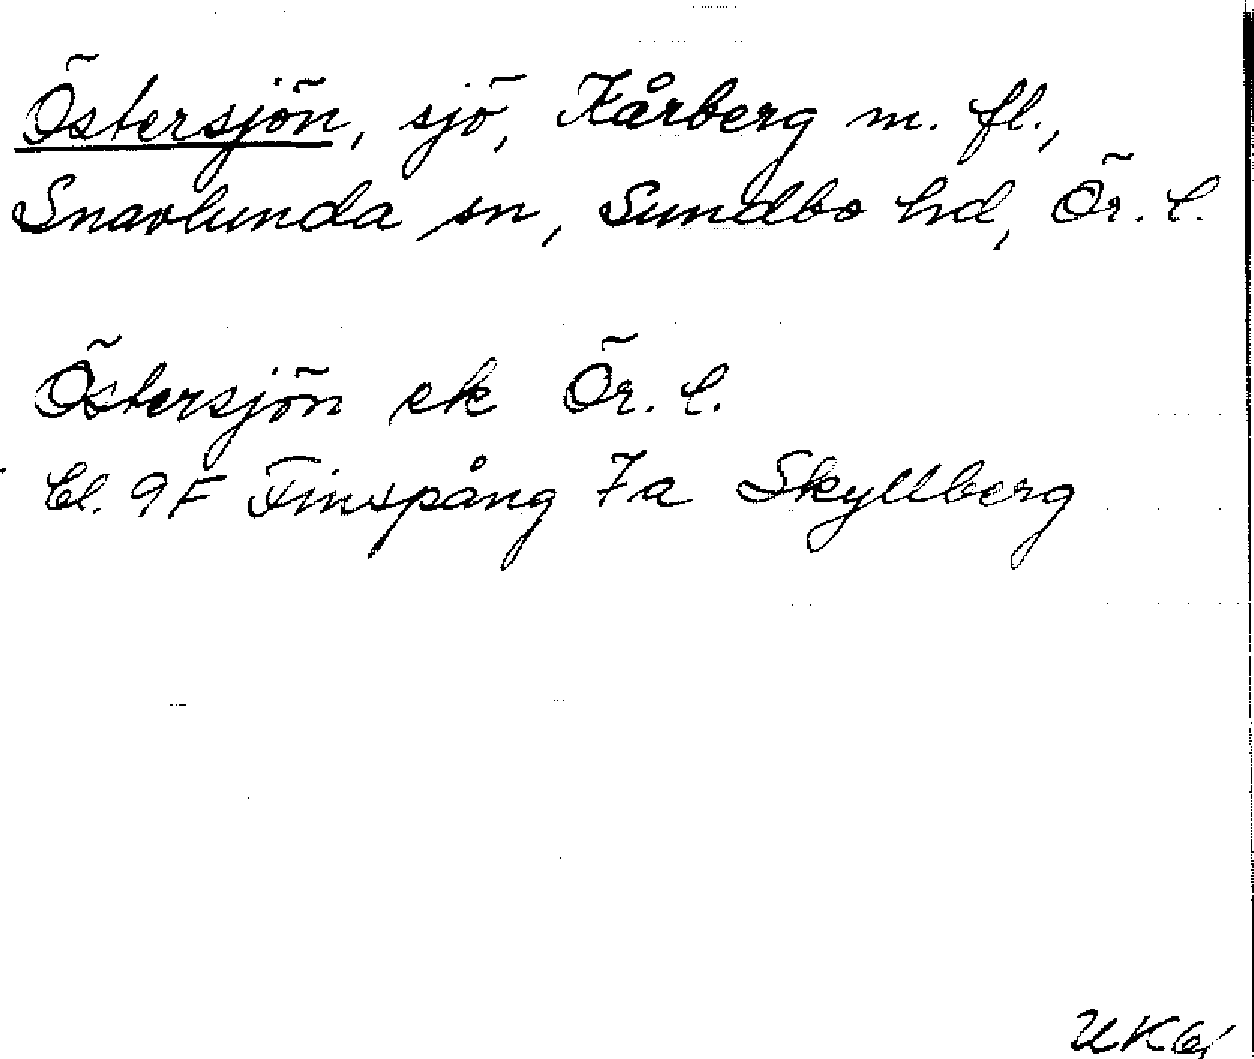 Östersjön, sjö, Kårberg m. fl.,
Snavlunda sn, Sundbo hd, Ör. l.
Östersjön ek Ör. l.
bl. 9F Finspång 7a Skyllberg